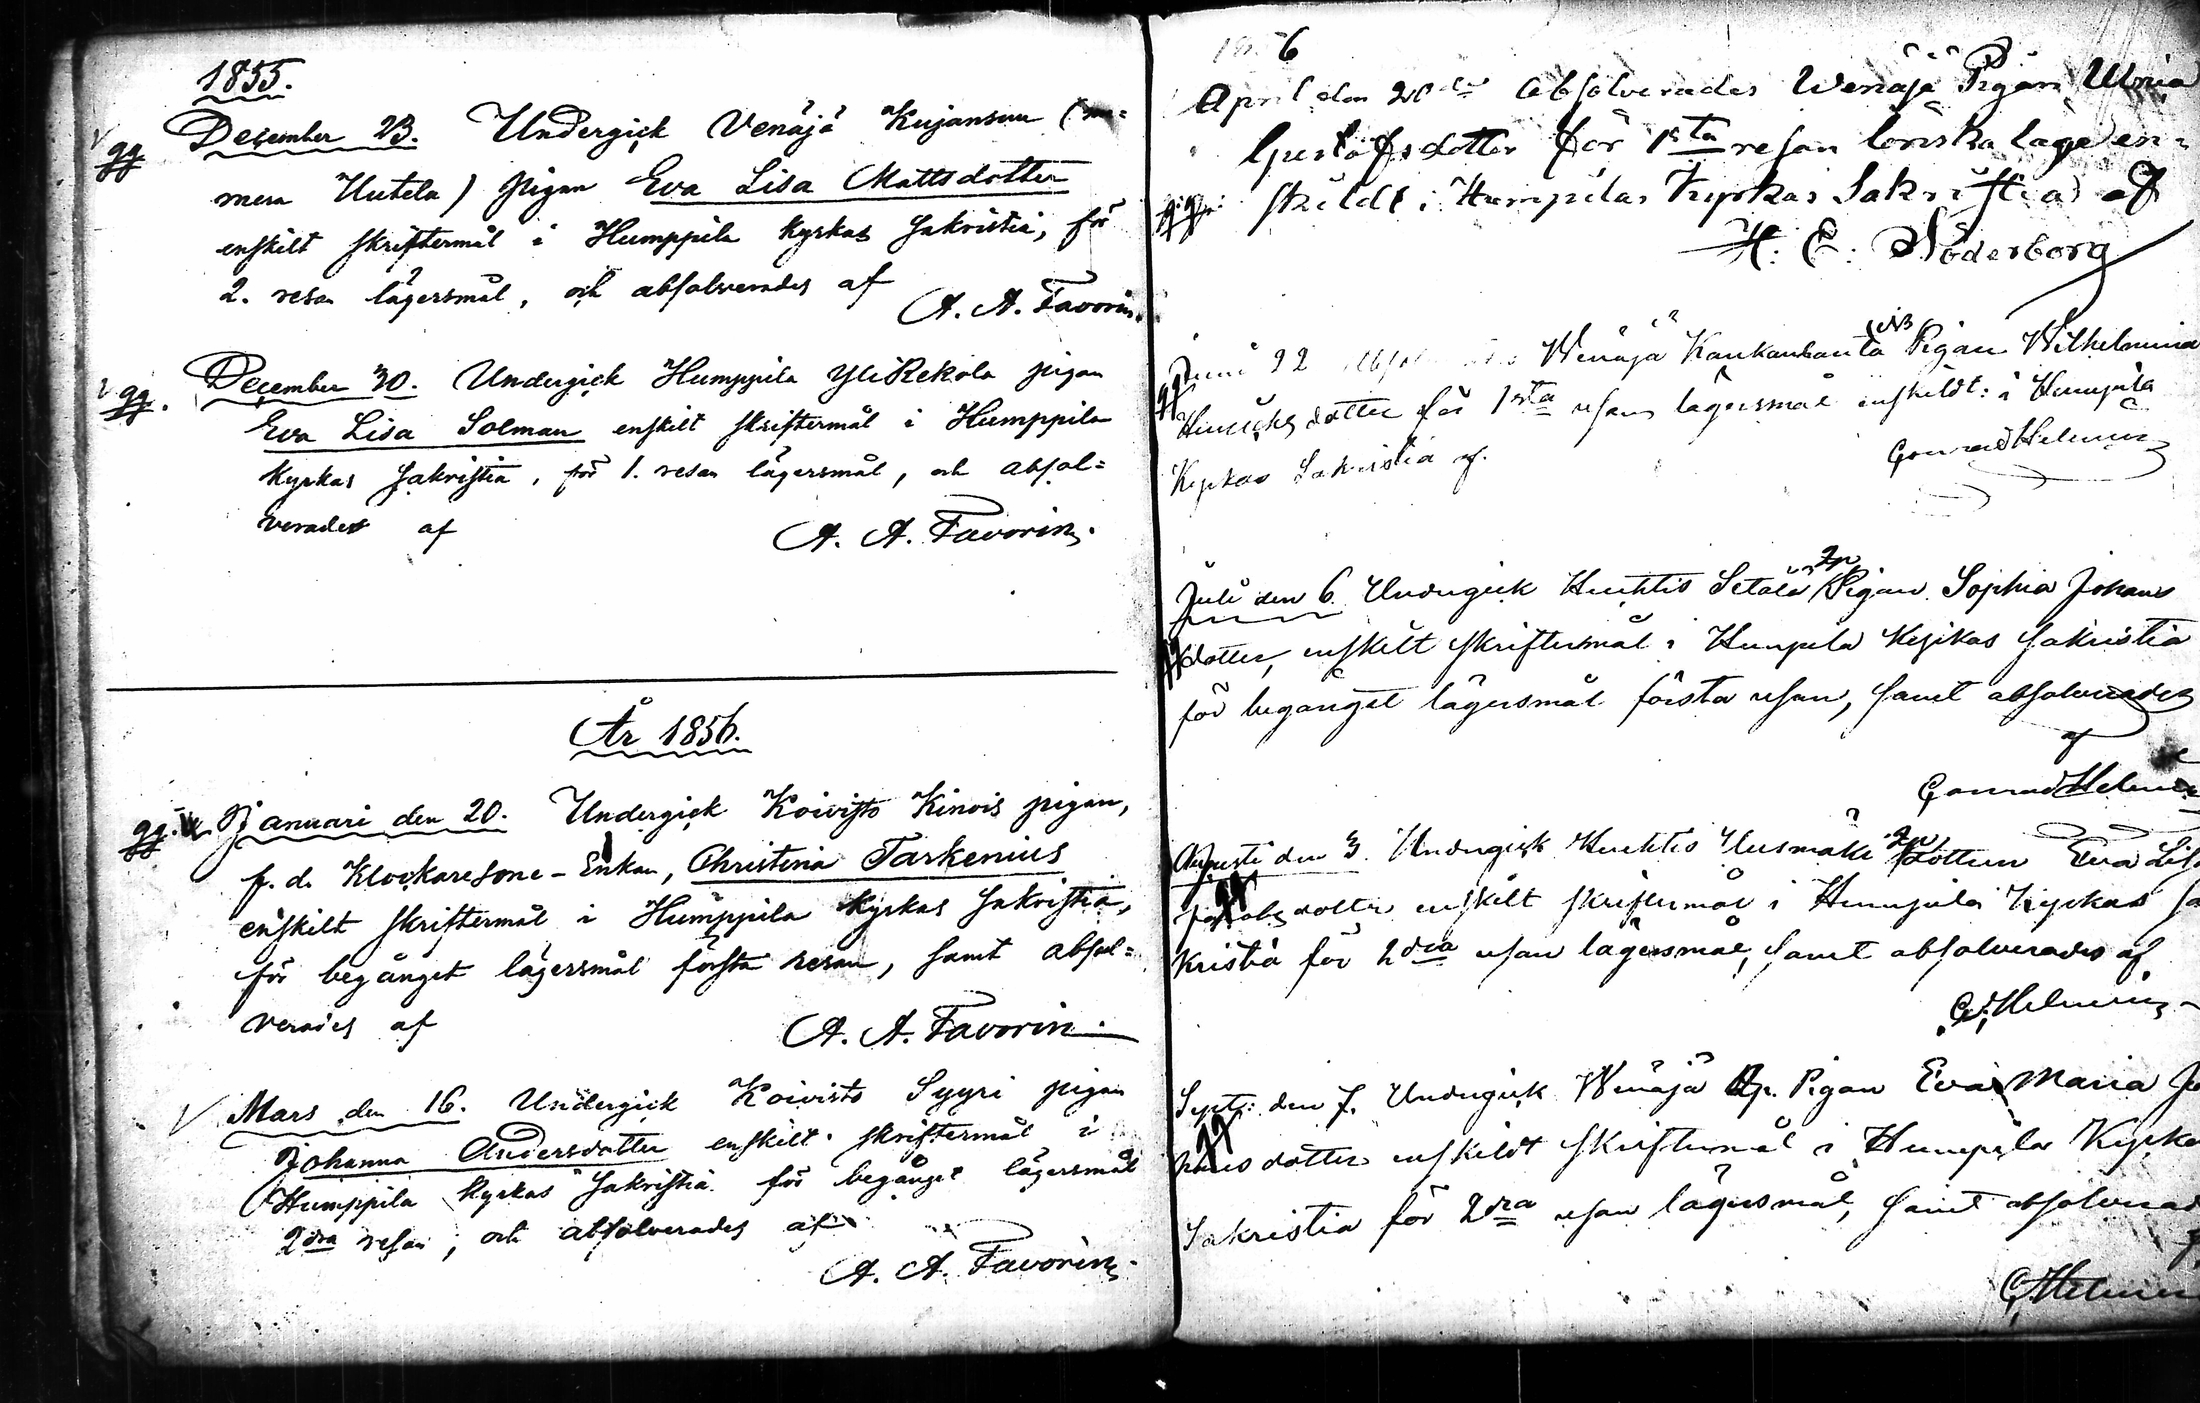 1855.
gg December 23. Undergick Venäjä Kujansuu (nu=
mera Uutela) pigan Eva Lisa Mattsdotter
enskilt skriftermål i Humppila kyrkas sakristia, för
2. resan lägersmål, och absolverades af
A. A. Favorin.
gg. December 30. Undergick Humppila YliRekola pigan
Eva Lisa Solman enskilt skriftermål i Humppila
kyrkas sakristia, för 1. resan lägersmål, och absol=
verades af
A. A. Favorin.
År 1856.
gg. Januari den 20. Undergick Koivisto Kinois pigan,
f. d. Klockaresone-Enkan, Christina Tarkenius
enskilt skriftermål i Humppila kyrkas sakristia,
för begånget lägersmål första resan, samt absol=
verades af
A. A. Favorin.
Mars den 16. Undergick Koivisto Syyri pigan
Johanna Andersdotter enskilt skriftermål i
Humppila kyrkas sakristia för begånget lägersmål
2dra resan, och absolverades af
A. A. Favorin.
6
April den 20de Absolverades Wenäjä Pigan Ulrica
Gustafsdotter för 1sta resan lönska läge en=
skildt i Humpilas Kyrkas Sakristia af
H. E. Söderborg
Juni 22 Wenäjä Kankaanranta Pigan Wilhelmina
Henrichsdotter för 1sta resan lägersmål enskildt i Humpila
Kyrkas Sakristia af.
Conrad Helenius
Juli den 6. Undergick Huhtis Setälä Pigan Sophia Johans
dotter, enskilt skriftermål i Humpila Kyrkas sakristia
för begånget lägersmål första resan, samt absolverades
af
Conrad Helenius
Augusti den 3. Undergick Huhtis Uusmäki dottern Eva Lisa
Jacobsdotter enskilt skriftermål i Humpila Kyrkas sa
kristia för 2dra resan lägersmål, samt absolverades af
C. Helenius
Sept: den 7. Undergick Wenäjä Pigan Eva Maria Jo
hansdotter enskildt skriftermål i Humpila Kyrka
Sakristia för 2dra resan lägersmål, samt absolverad
C. Helenius